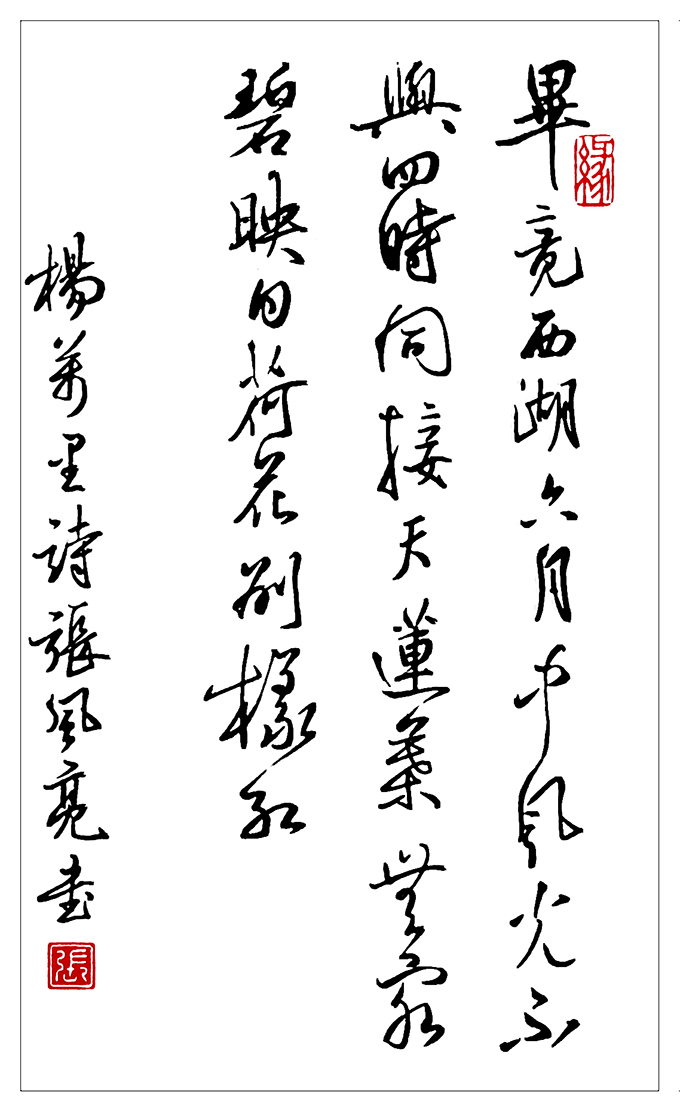 畢竟西湖六月中風光不
緣
與四時同接天蓮葉無窮
碧映日荷花別樣紅
楊萬里詩張風亮書
張